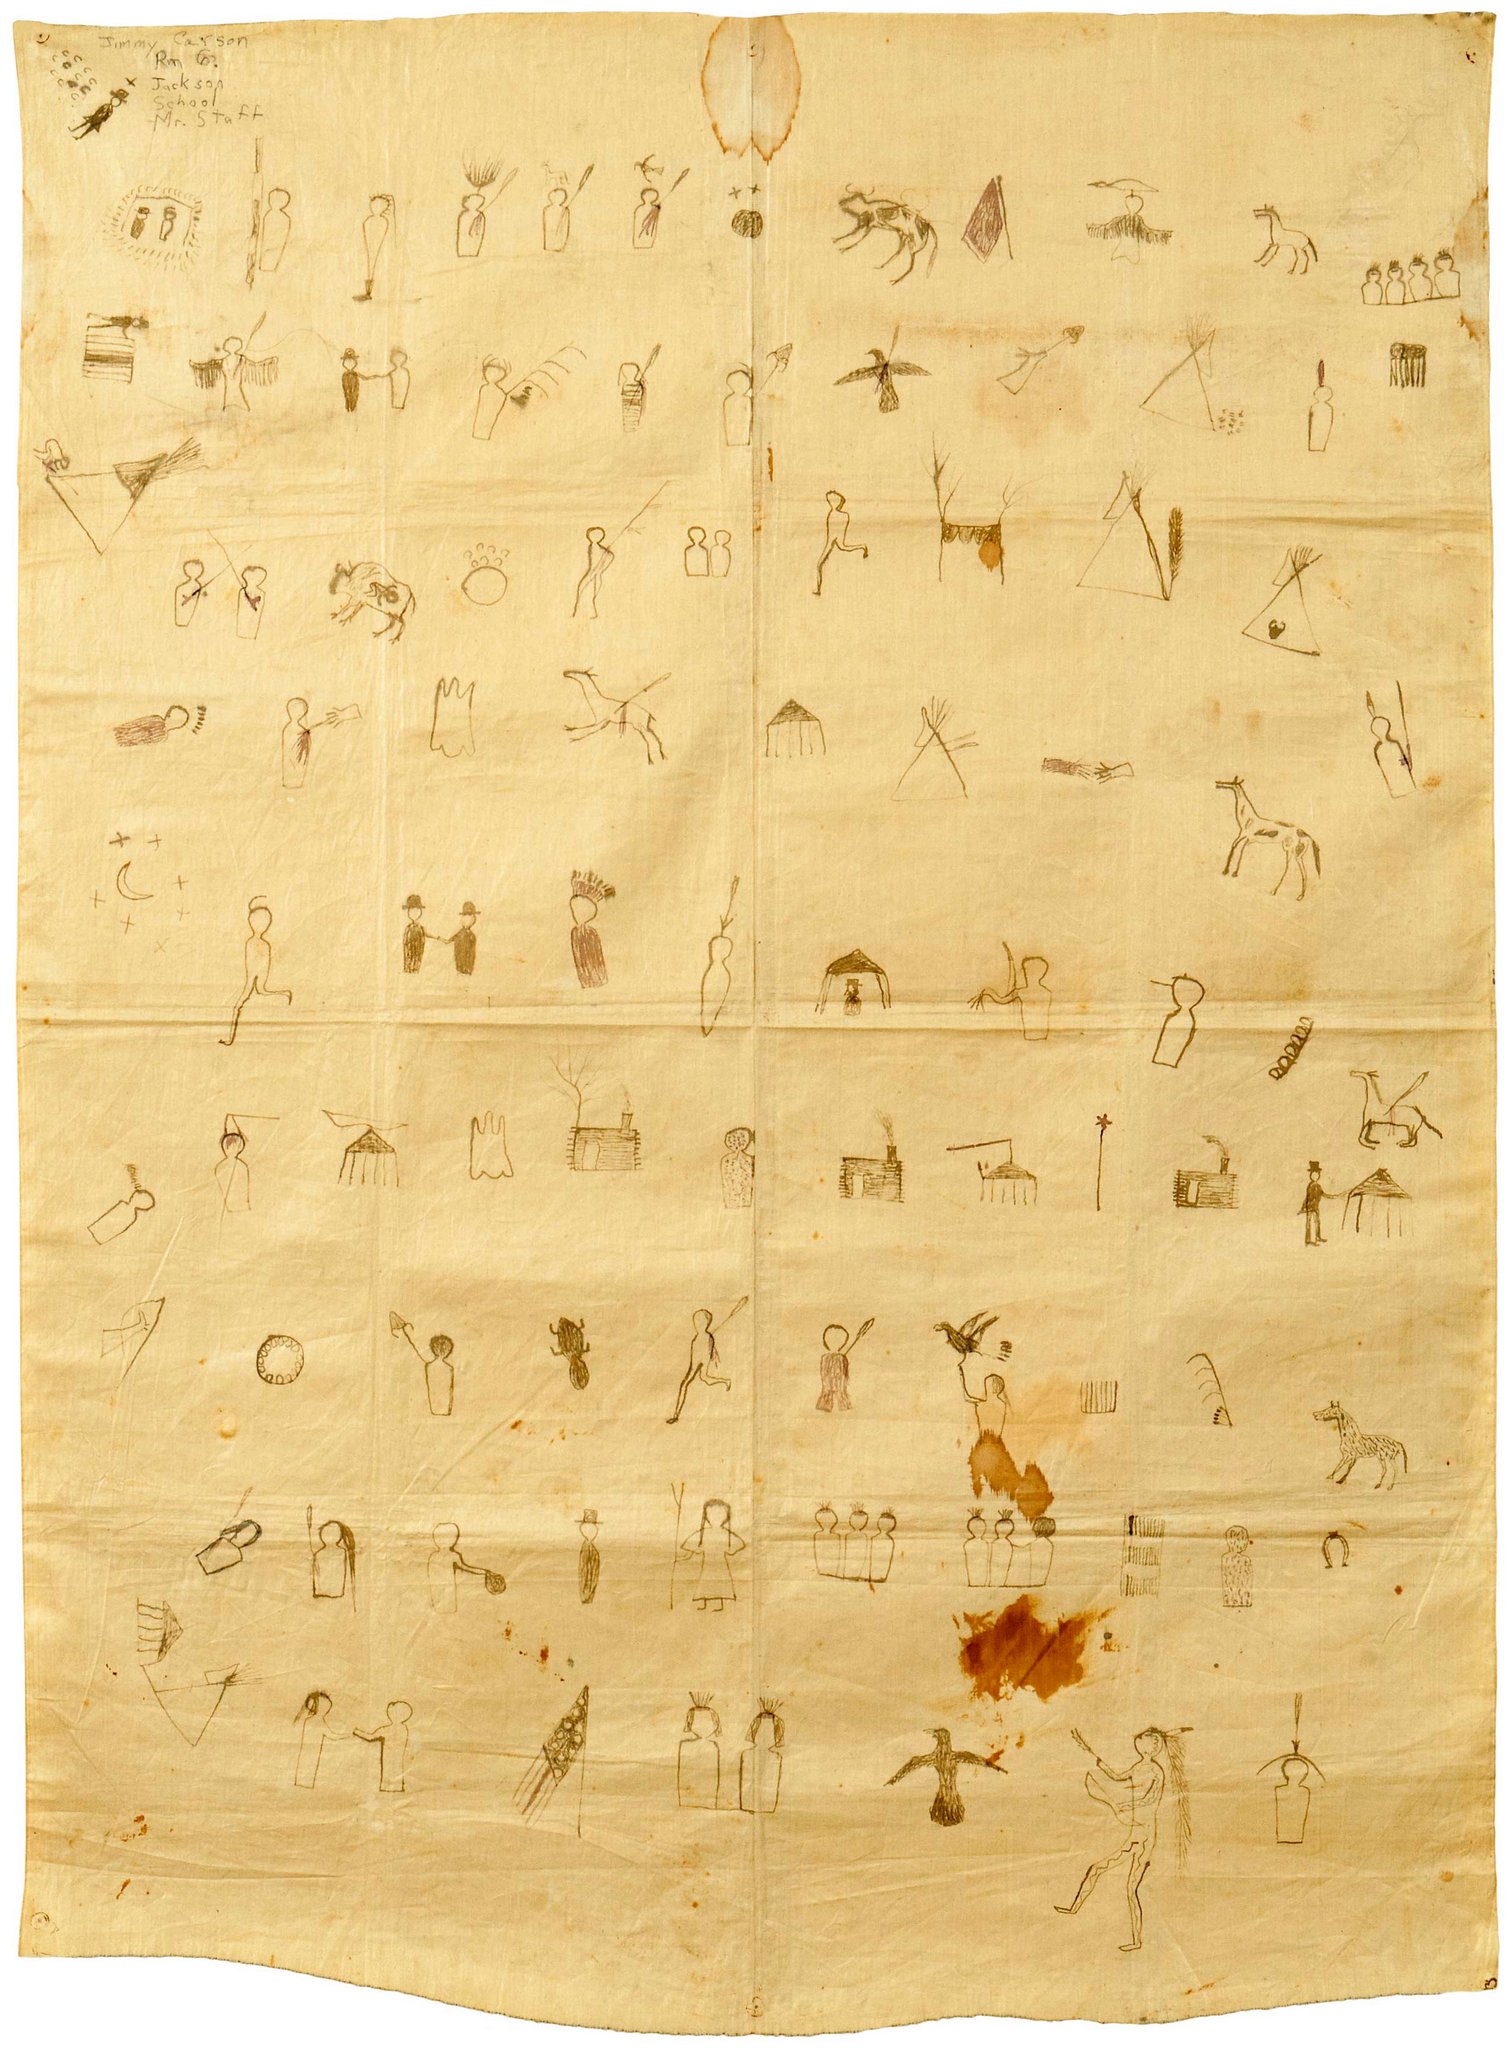 Jimmy Carson
Rm 6.
Jackson
School
Mr. Staff
B